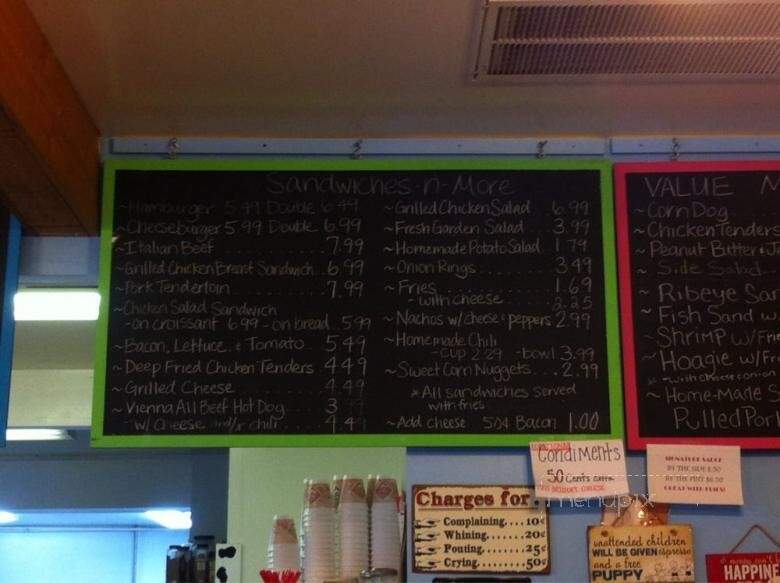 Sandwiches-n-More
~Hamburger 5.49 Double 6.49
~Cheeseburger 5.99 Double 6.99
~Italian Beef 7.99
~Grilled Chicken Breast Sandwich 6.99
~Pork Tenderloin 7.99
~Chicken Salad Sandwich
-on croissant 6.99 -on bread 5.99
~Bacon, Lettuce & Tomato 5.49
~Deep Fried Chicken Tenders 4.49
~Grilled Cheese 4.49
~Vienna All Beef Hot Dog 3
w/ Cheese and/or chili 4.49
~Grilled Chicken Salad 6.99
~Fresh Garden Salad 3.99
~Homemade Potato Salad 1.79
~Onion Rings 3.49
~Fries 1.69
-with cheese 2.25
~Nachos w/ cheese & peppers 2.99
~Homemade Chili
-cup 2.29 -bowl 3.99
~Sweet Corn Nuggets 2.99
*All sandwiches served
with fries
~Add cheese 50¢ Bacon 1.00
VALUE M
~Corn Dog
~Chicken Tenders
~Peanut Butter &
~Side Salad
~Ribeye Sa
~Fish Sand w
~Shrimp w/Fri
~Hoagie w/Fri
~Home-Made S
Pulled Por
Condiments
50 Cents extra
SIGNATURE SAUCE
BY THE SIDE $.50
BY THE PINT $6.50
GREAT WITH FRIES!
menupix
Charges for
Complaining.... 10¢
Whining......... 20¢
Pouting.......... 25¢
Crying........... 50¢
unattended children
WILL BE GIVEN espresso
and a free
PUPPY
HAPPINE